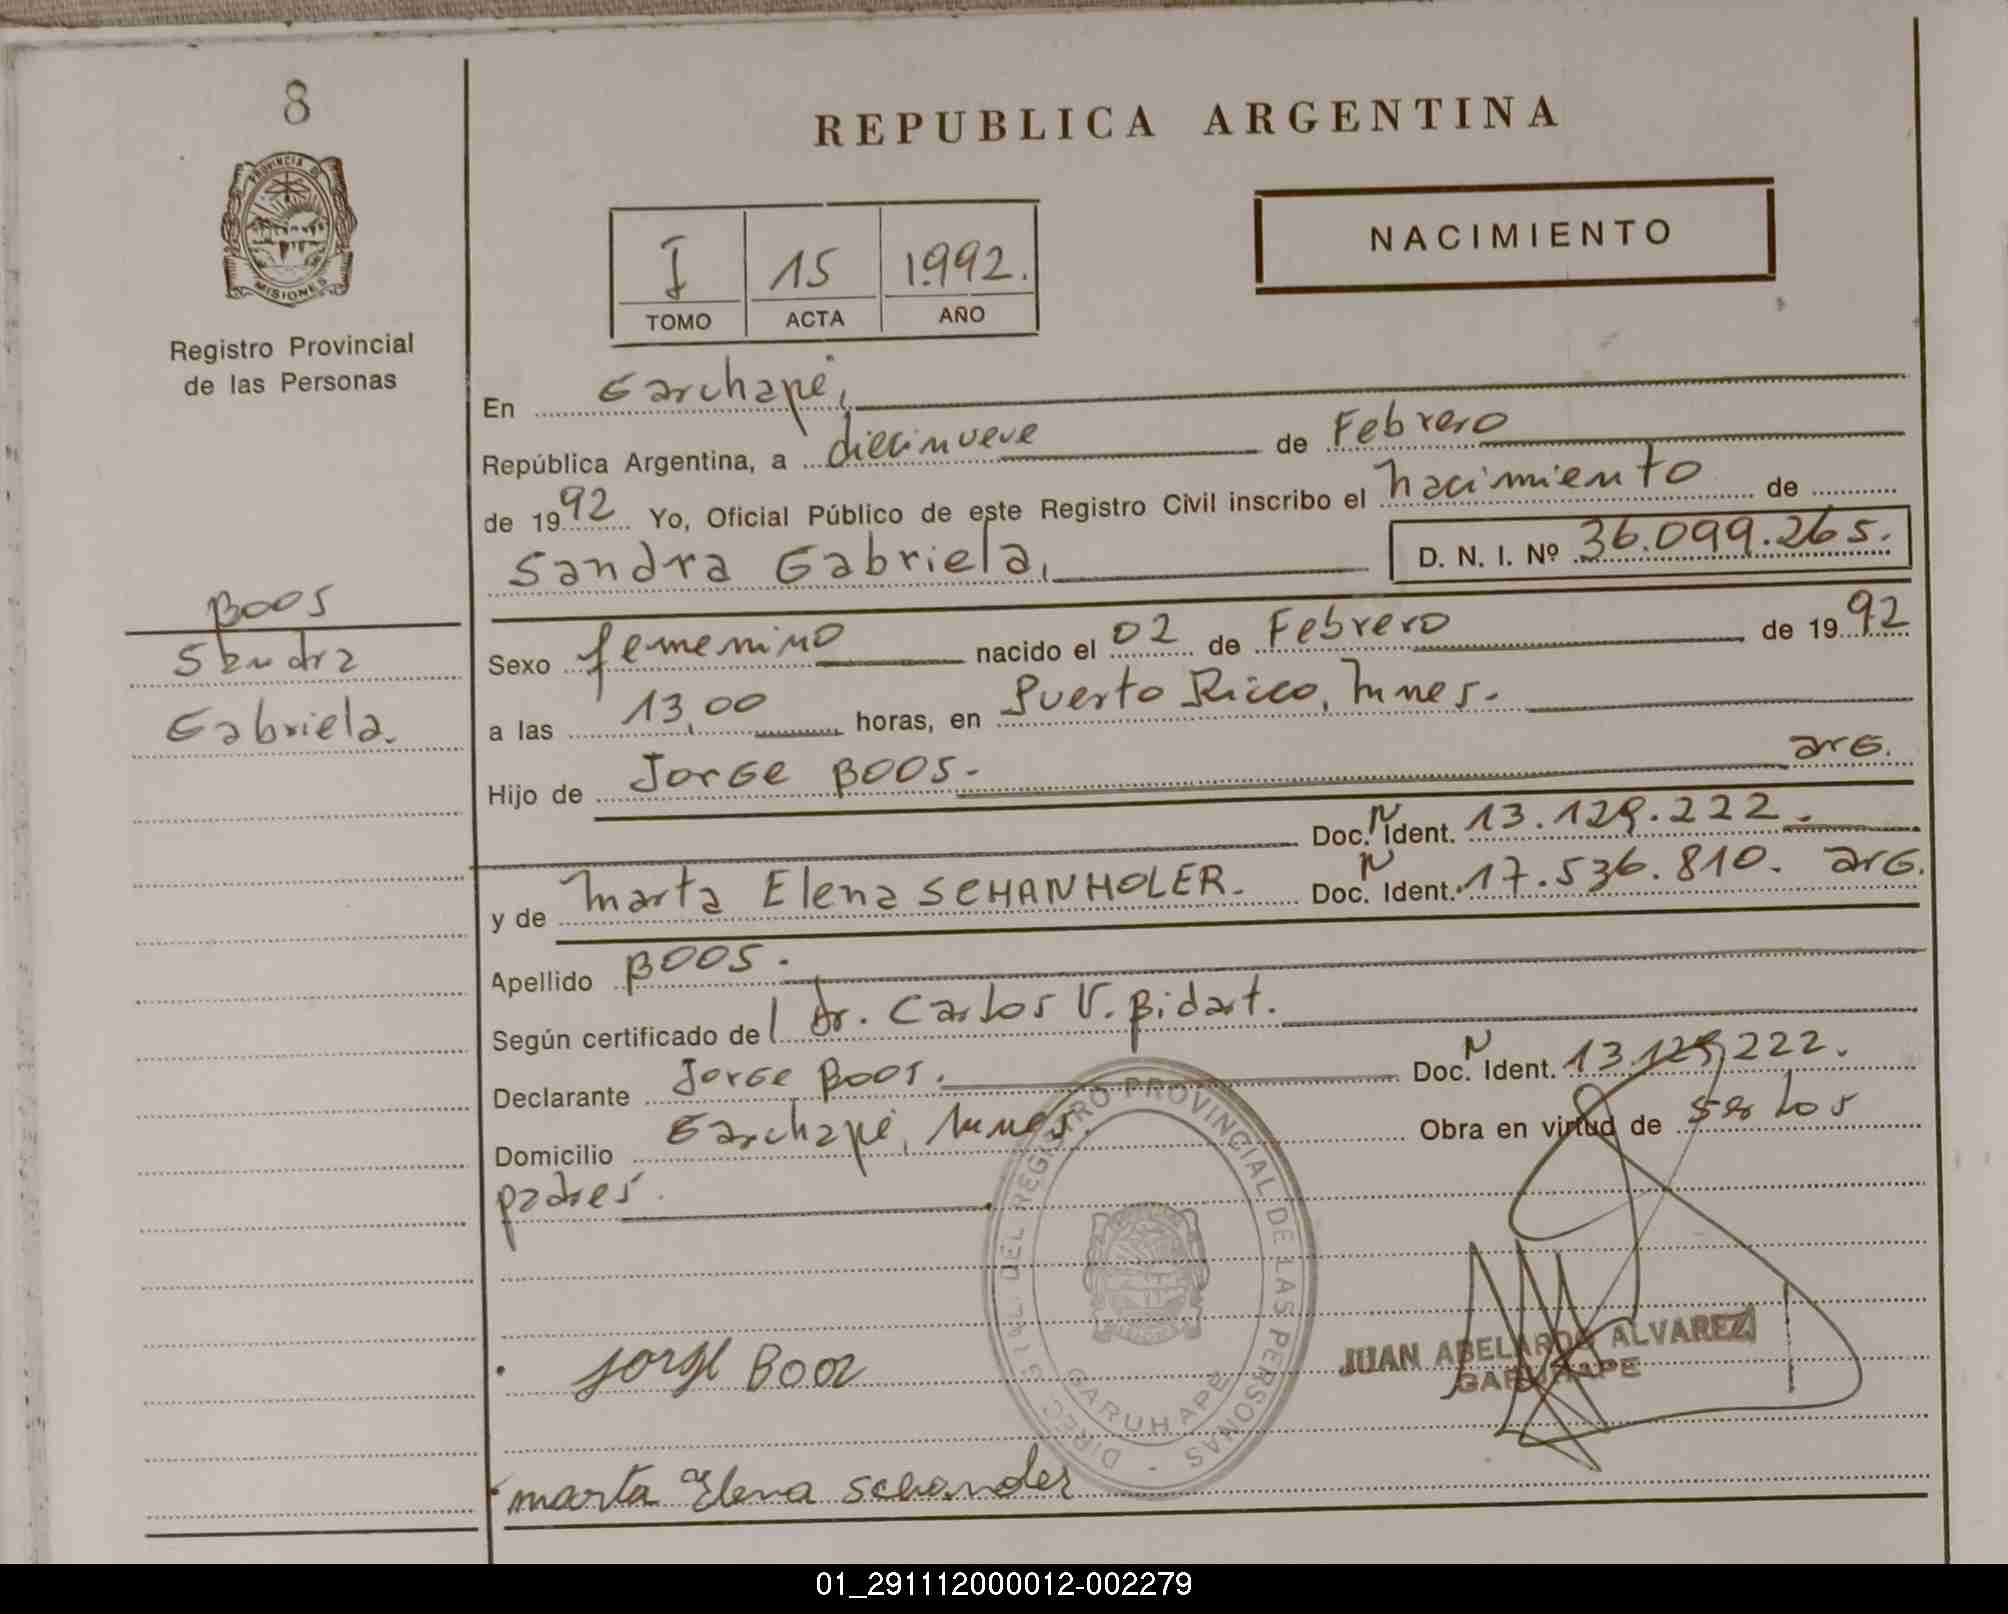 8
PROVINCIA DE
MISIONES
Registro Provincial
de las Personas
BOOS
Sandra
Gabriela.
REPUBLICA ARGENTINA
I 15 1.992.
TOMO ACTA AÑO
NACIMIENTO
En Garuhapé,
República Argentina, a diecinueve de Febrero
de 1992 Yo, Oficial Público de este Registro Civil inscribo el nacimiento de
Sandra Gabriela, D. N. I. Nº 36.099.265.
Sexo femenino nacido el 02 de Febrero de 1992
a las 13,00 horas, en Puerto Rico, Mnes.
Hijo de Jorge BOOS.- arg.
Doc. N Ident. 13.129.222.
y de Marta Elena SCHANHOLER. Doc. N Ident. 17.536.810. arg.
Apellido BOOS.
Según certificado del Dr. Carlos V. Bidart.
Declarante Jorge Boos. Doc. N Ident. 13.129,222.
Domicilio Garuhapé, Mnes. Obra en virtud de ser los
padres.
DIREC. GRAL. DEL REGISTRO PROVINCIAL DE LAS PERSONAS -
GARUHAPE
JUAN ABELARDO ALVAREZ
GARUHAPE
Jorge Boos
Marta Elena Schanoler
01_291112000012-002279